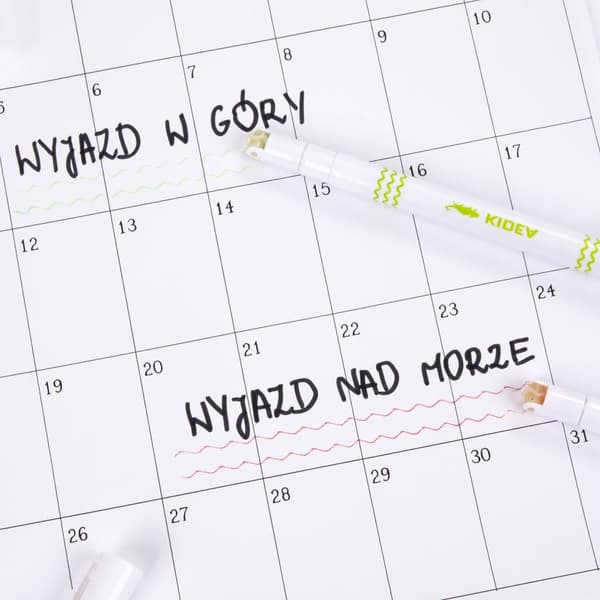 10
9
8
7
6
5
WYJAZD W GÓRY
17
16
15
14
13
12
KIDEA
24
23
22
21
20
19
WYJAZD NAD MORZE
31
30
29
28
27
26